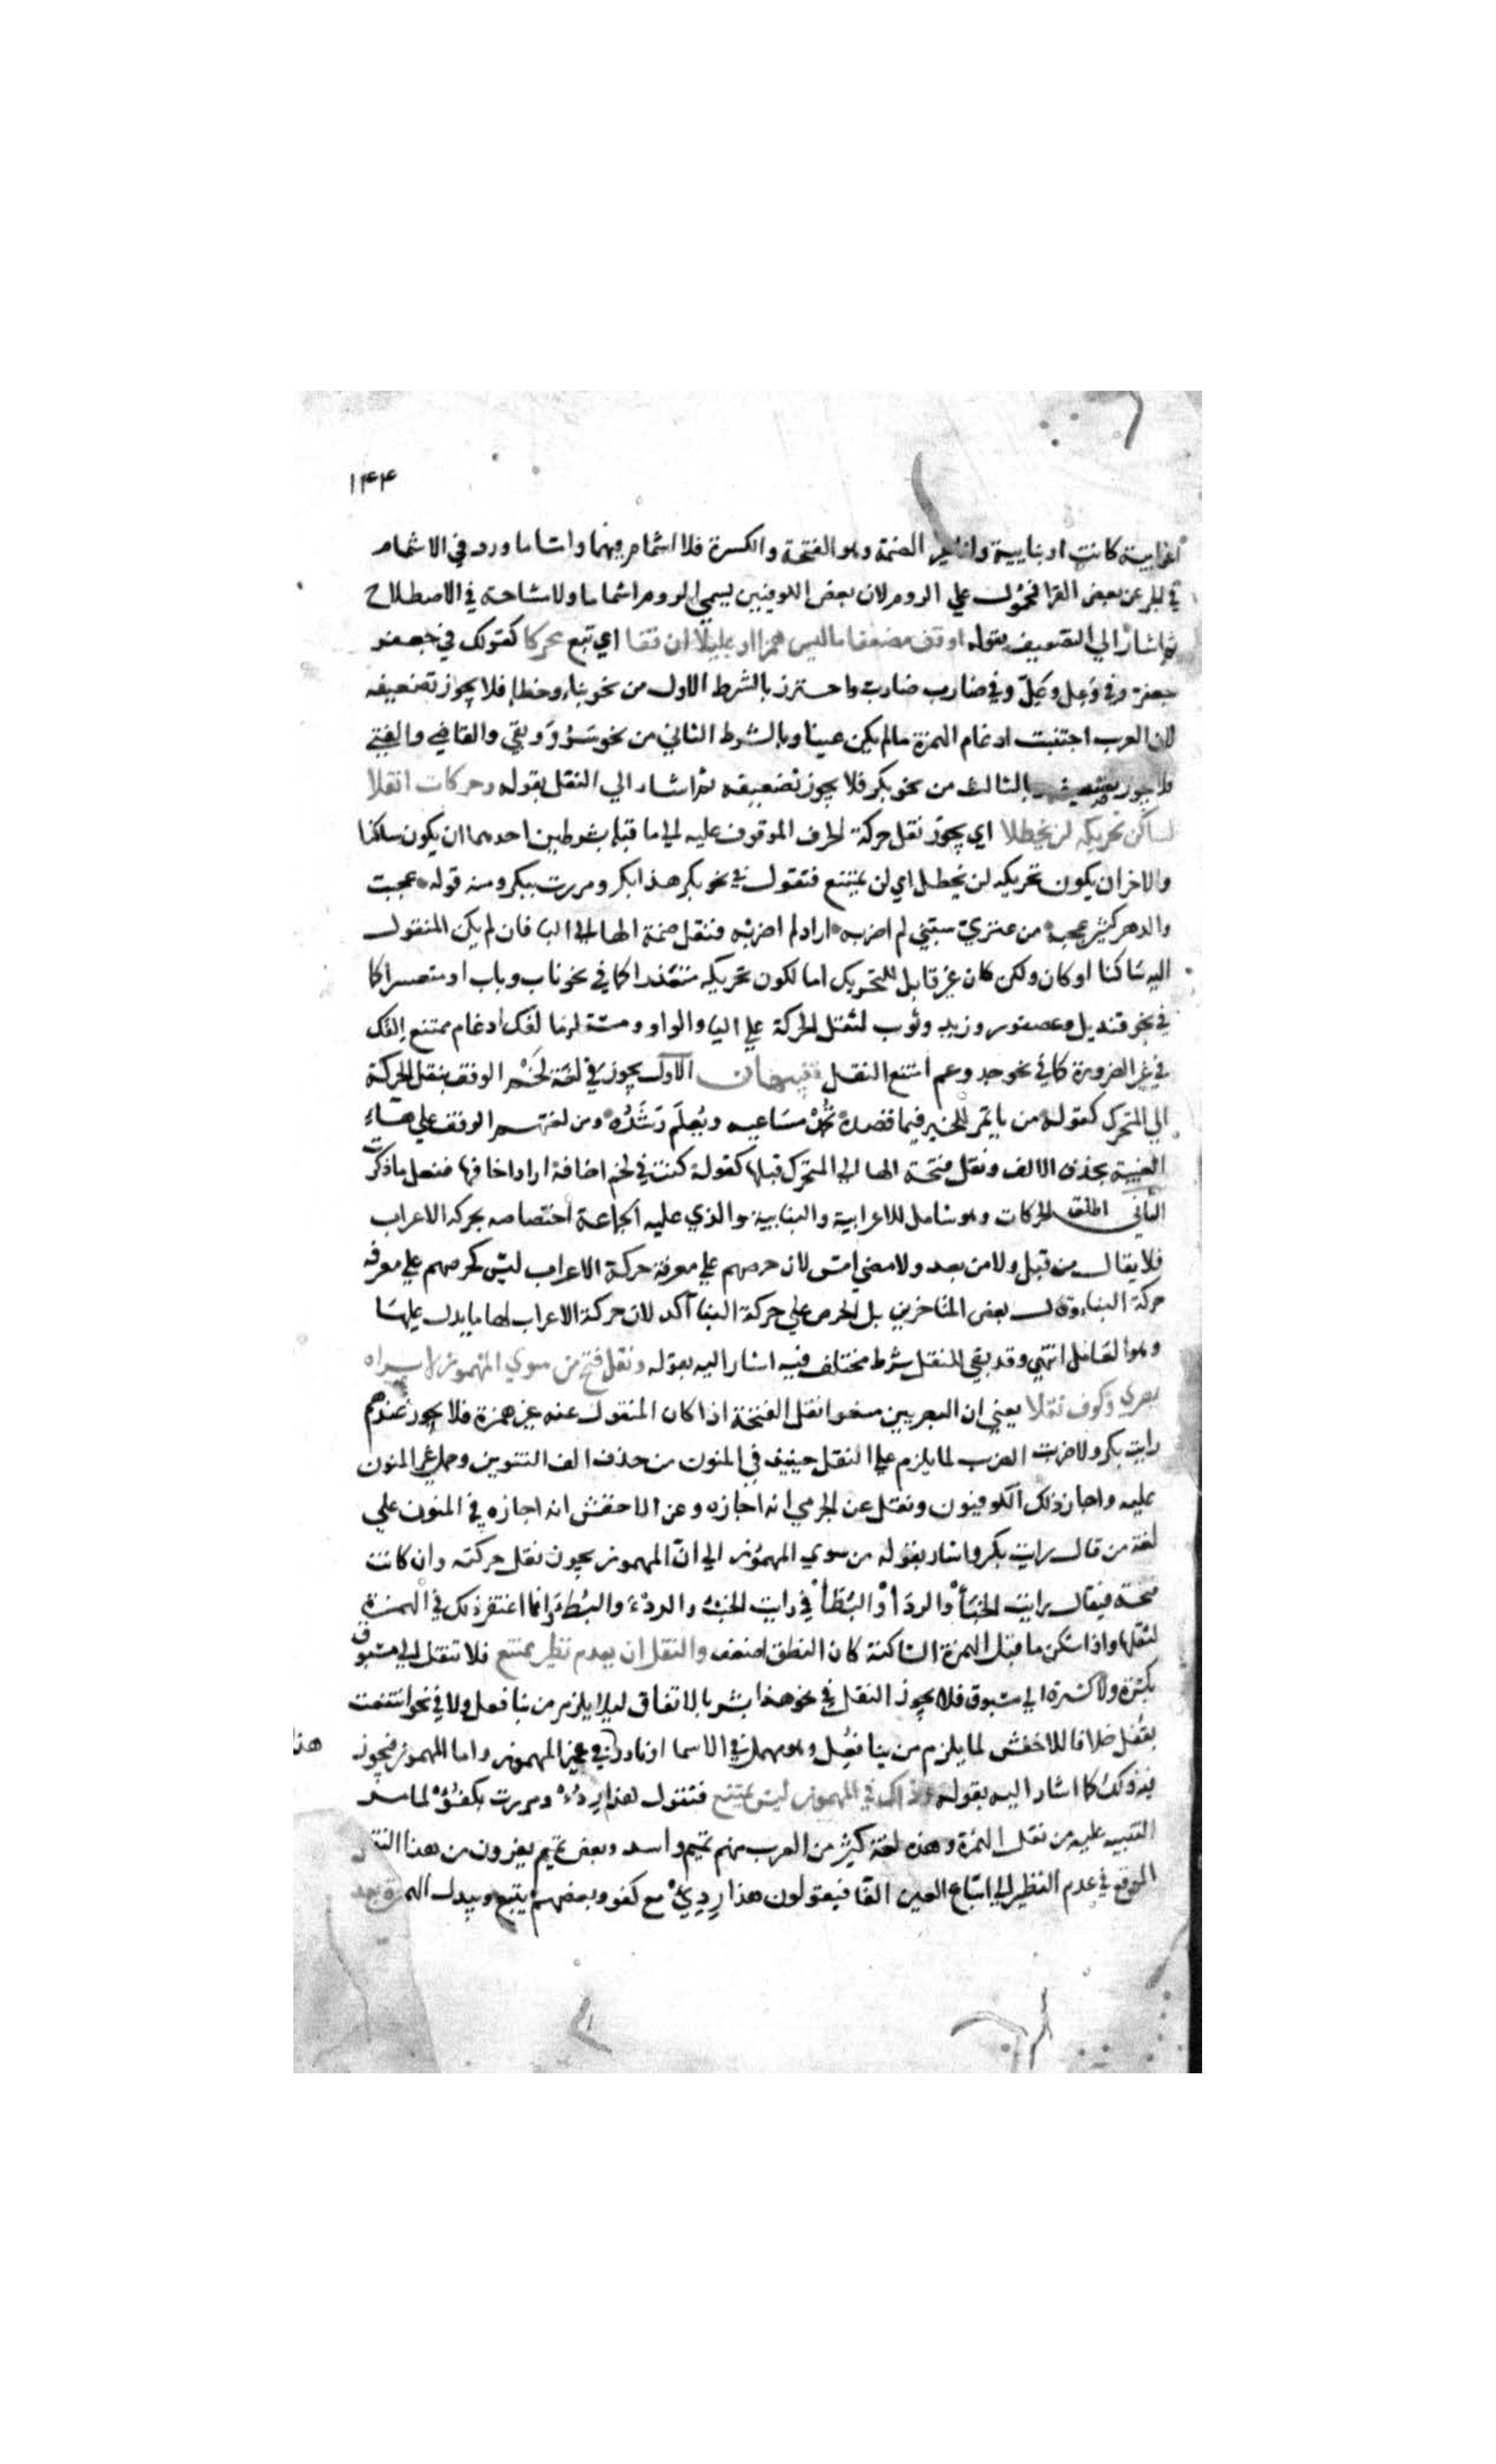 ١٤٤
اعرابية كانت او بنايية واما غير الضمة وهو الفتحة والكسرة فلا اشمام فيهما واما ما ورد في الاشمام
في الجر عن بعض القرا فمحمول علي الروم لان بعض الكوفيين يسمي الروم اشماما ولا مشاحة في الاصطلاح
ثم اشار الي التضعيف بقوله او قف مضعفا ما ليس همزا او عليلا ان قفا اي تبع محركا كقولك في جعفر
جعفر وفي وعل وعل وفي ضارب ضارب واحترز بالشرط الاول من نحو بناء وخطاء فلا يجوز تضعيفه
لان العرب اجتنبت ادغام الهمزة مالم يكن عينا وبالشرط الثاني من نحو سرو وبقي والقاضي والفتي
فلا يجوز تضعيفه وبالثالث من نحو بكر فلا يجوز تضعيفه ثم اشار الي النقل بقوله وحركات انقلا
لساكن تحريكه لن يحظلا اي يجوز نقل حركة الحرف الموقوف عليه الي ما قبله بشرطين احدهما ان يكون ساكنا
والاخر ان يكون تحريكه لن يحظل اي لن يمتنع فتقول في نحو بكر هذا بكر ومررت ببكر ومنه قوله عجبت
والدهر كثير عجبه من عنزي سبني لم اضربه اراد لم اضربه فنقل ضمة الها الي البا فان لم يكن المنقول
اليه ساكنا او كان ولكن كان غير قابل للتحريك اما لكون تحريكه متعذرا كما في نحو ناب وباب او متعسرا كما
في نحو قنديل وعصفور وزيد وثوب لثقل الحركة علي اليا والواو ومستلزما لفك ادغام ممتنع الفك
في غير الضرورة كما في نحو جد وعم امتنع النقل تنبيهان الاول يجوز في لغة لخم الوقف بنقل الحركة
الي المتحرك كقوله من ياتمر للخير فيما قصده تحمد مساعيه ويعلم رشده ومن لغتهم الوقف علي هاء
الغيبة بحذف الالف ونقل فتحة الها الي المتحرك قبلها كقوله كنت في لخم اخافه اراد اخافها ففعل ما ذكرت
الثاني اطلق الحركات وهو شامل للاعرابية والبنايية والذي عليه الجماعة اختصاصه بحركة الاعراب
فلا يقال من قبل ولا من بعد ولا مضي امس لان حرصهم علي معرفة حركة الاعراب ليس كحرصهم علي معرفة
حركة البناء وقال بعض المتاخرين بل الحرص علي حركة البنا آكد لان حركة الاعراب لها ما يدل عليها
وهو العامل انتهي وقد بقي للنقل شرط مختلف فيه اشار اليه بقوله ونقل فتح من سوي المهموز لا يراه
بصري وكوف نقلا يعني ان البصريين منعوا نقل الفتحة اذا كان المنقول عنه غير همزة فلا يجوز عندهم
رايت بكر ولا ضربت الضرب لما يلزم علي النقل حينيذ في المنون من حذف الف التنوين وحمل غير المنون
عليه واجاز ذلك الكوفيون ونقل عن الجرمي انه اجازه وعن الاخفش انه اجازه في المنون علي
لغة من قال رايت بكر واشار بقوله من سوي المهموز الي ان المهموز يجوز نقل حركته وان كانت
فتحة فيقال رايت الخبأ والردأ والبطأ في رايت الخبء والردء والبطء وانما اغتفر ذلك في الهمزة
لثقلها واذا سكن ما قبل الهمزة الساكنة كان النطق اضعف والنقل ان يعدم نظير ممتنع فلا تنقل الي مسبوق
بكسرة ولا كسرة الي مسبوق فلا يجوز النقل في نحو هذا بشر بالاتفاق ليلا يلزم من بنا فعل ولا في نحو انتفعت
بقفل خلافا للاخفش لما يلزم من بنا فعل وهو مهمل في الاسما او نادر في غير المهموز واما المهموز فيجوز
فيه ذلك كما اشار اليه بقوله وذاك في المهموز ليس يمتنع فتقول هذا ردء ومررت بكفؤ لما سبق
التنبيه عليه من نقل الهمزة وهذه لغة كثير من العرب منهم تميم واسد وبعض تميم يفرون من هذا النقل
الموقع في عدم النظير الي اتباع العين الفا فيقولون هذا ردئ مع كفو وبعضهم يتبع ويبدل الهمزة بعد
هذا